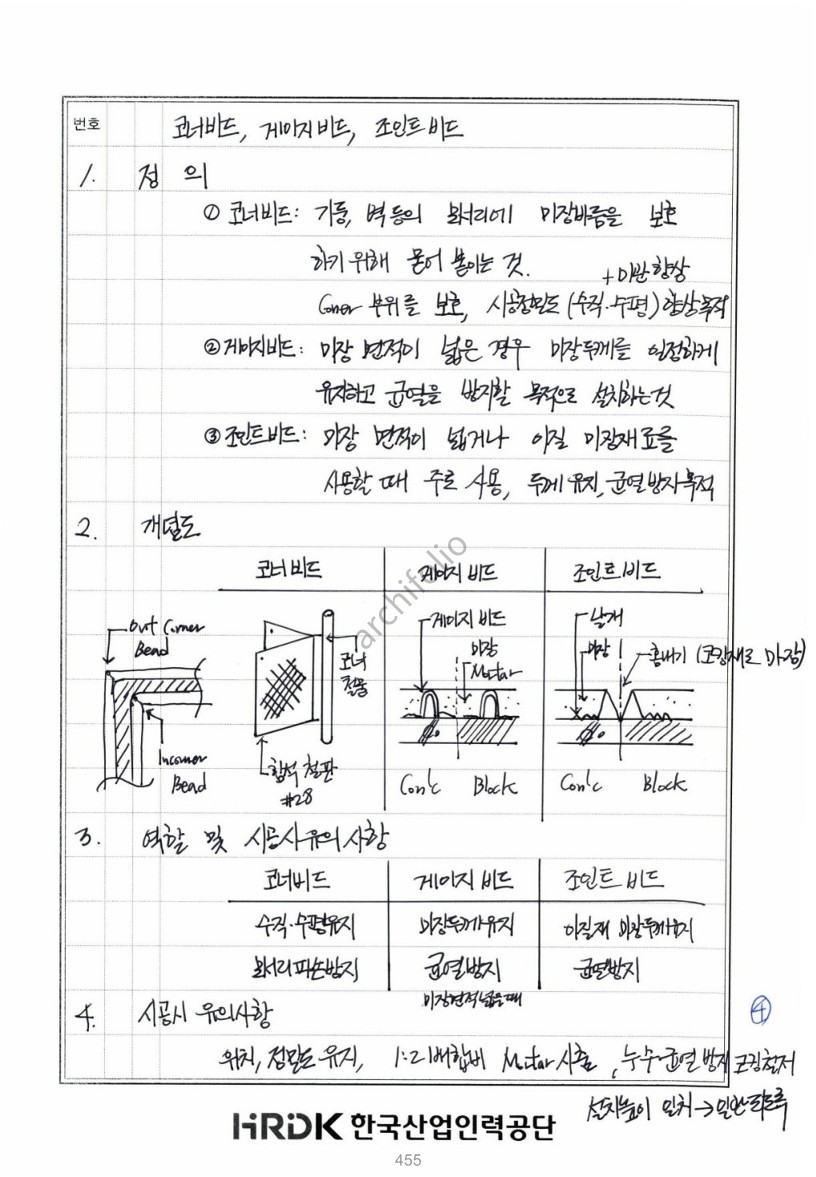 번호
코너비드, 게이지비드, 조인트비드
1. 정 의
① 코너비드: 기둥, 벽 등의 모서리에 미장바름을 보호
하기 위해 묻어 붙이는 것.
+ 미관향상
Coner 부위를 보호, 시공정밀도 (수직·수평) 향상 목적
② 게이지비드: 미장 면적이 넓은 경우 미장두께를 일정하게
유지하고 균열을 방지할 목적으로 설치하는것
③ 조인트비드: 미장 면적이 넓거나 이질 미장재료를
사용할 때 주로 사용, 두께 유지, 균열 방지 목적
2. 개념도
코너 비드 게이지 비드 조인트 비드
out Corner
Bead
Incorner
Bead
코너
철물
함석 철판
#28
게이지 비드
미장
Mortar
Con'c Block
날개
미장
줄내기 (코킹재로 마감)
Con'c Block
3. 역할 및 시공시 유의사항
코너비드 게이지 비드 조인트 비드
수직·수평유지 미장두께유지 이질재 미장두께유지
모서리파손방지 균열방지 균열방지
미장면적넓을때
4. 시공시 유의사항
위치, 정밀도 유지, 1:2 배합비 Mortar 사춤, 누수·균열 방지 코킹철저
설치높이 일치 → 일안되도록
④
archifolio
HRDK 한국산업인력공단
455